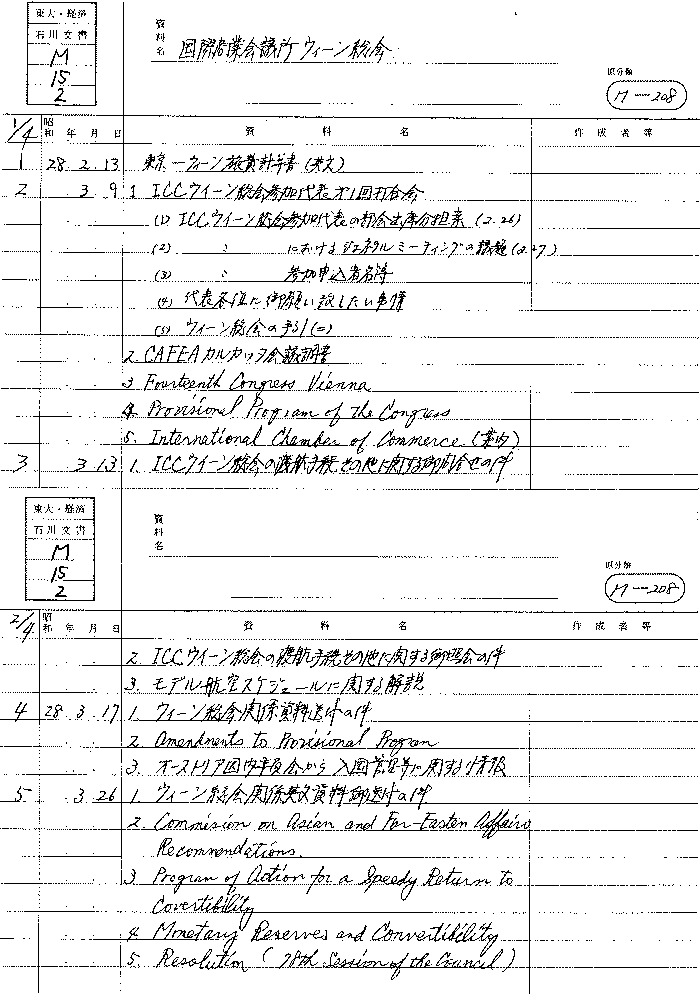 東大・経済
石川文書
M
15
2
資料名
国際商業会議所ウィーン総会
原分類
M-208
1/4
昭和 年 月 日 資料名 作成者等
1 28.2.13 東京―ウィーン旅費計算書 (英文)
2 3.9 1. ICCウィーン総会参加代表オ1回打合会
(1) ICCウィーン総会参加代表の部会出席分担案 (2.26)
(2) 〃 におけるジェネラルミーティングの議題 (2.27)
(3) 〃 参加申込者名簿
(4) 代表各位に御願い致したい事項
(5) ウィーン総会の手引(二)
2. CAFEAカルカッタ会議説明書
3. Fourteenth Congress Vienna
4. Provisional Program of the Congress
5. International Chamber of Commerce (案内)
3 3.13 1. ICCウイーン総会の渡航手続その他に関する御問合せの件
東大・経済
石川文書
M
15
2
資料名
原分類
M-208
2/4
昭和 年 月 日 資料名 作成者等
2. ICCウイーン総会の渡航手続その他に関する御照会の件
3. モデル航空スケジュールに関する解説
4 28.3.17 1. ウィーン総会関係資料送付の件
2. Amendments to Provisional Program
3. オーストリア国内委員会から入国査証等に関する情報
5 3.26 1. ウィーン総会関係英文資料御送付の件
2. Commision on Asian and Far-Eastern Affairs
Recommendations.
3. Program of Action for a Speedy Return to
Covertibility
4. Monetary Reserves and Convertibility
5. Resolution (78th Session of the Council)